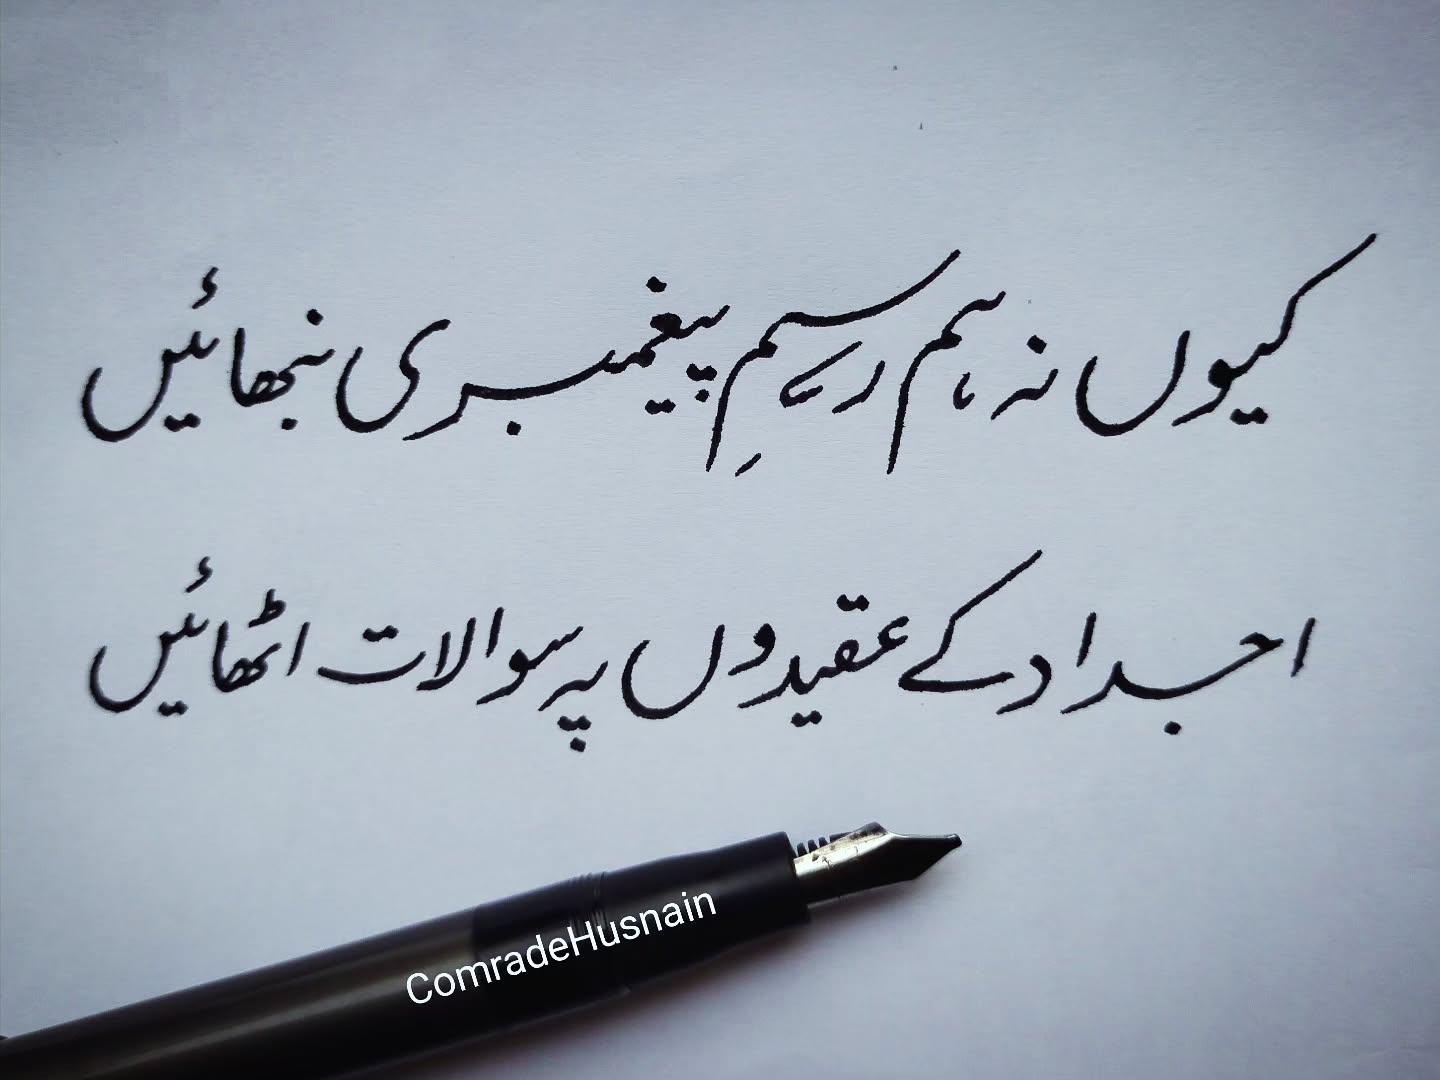 کیوں نہ ہم رسمِ پیغمبری نبھائیں
اجداد کے عقیدوں پہ سوالات اٹھائیں
ComradeHusnain